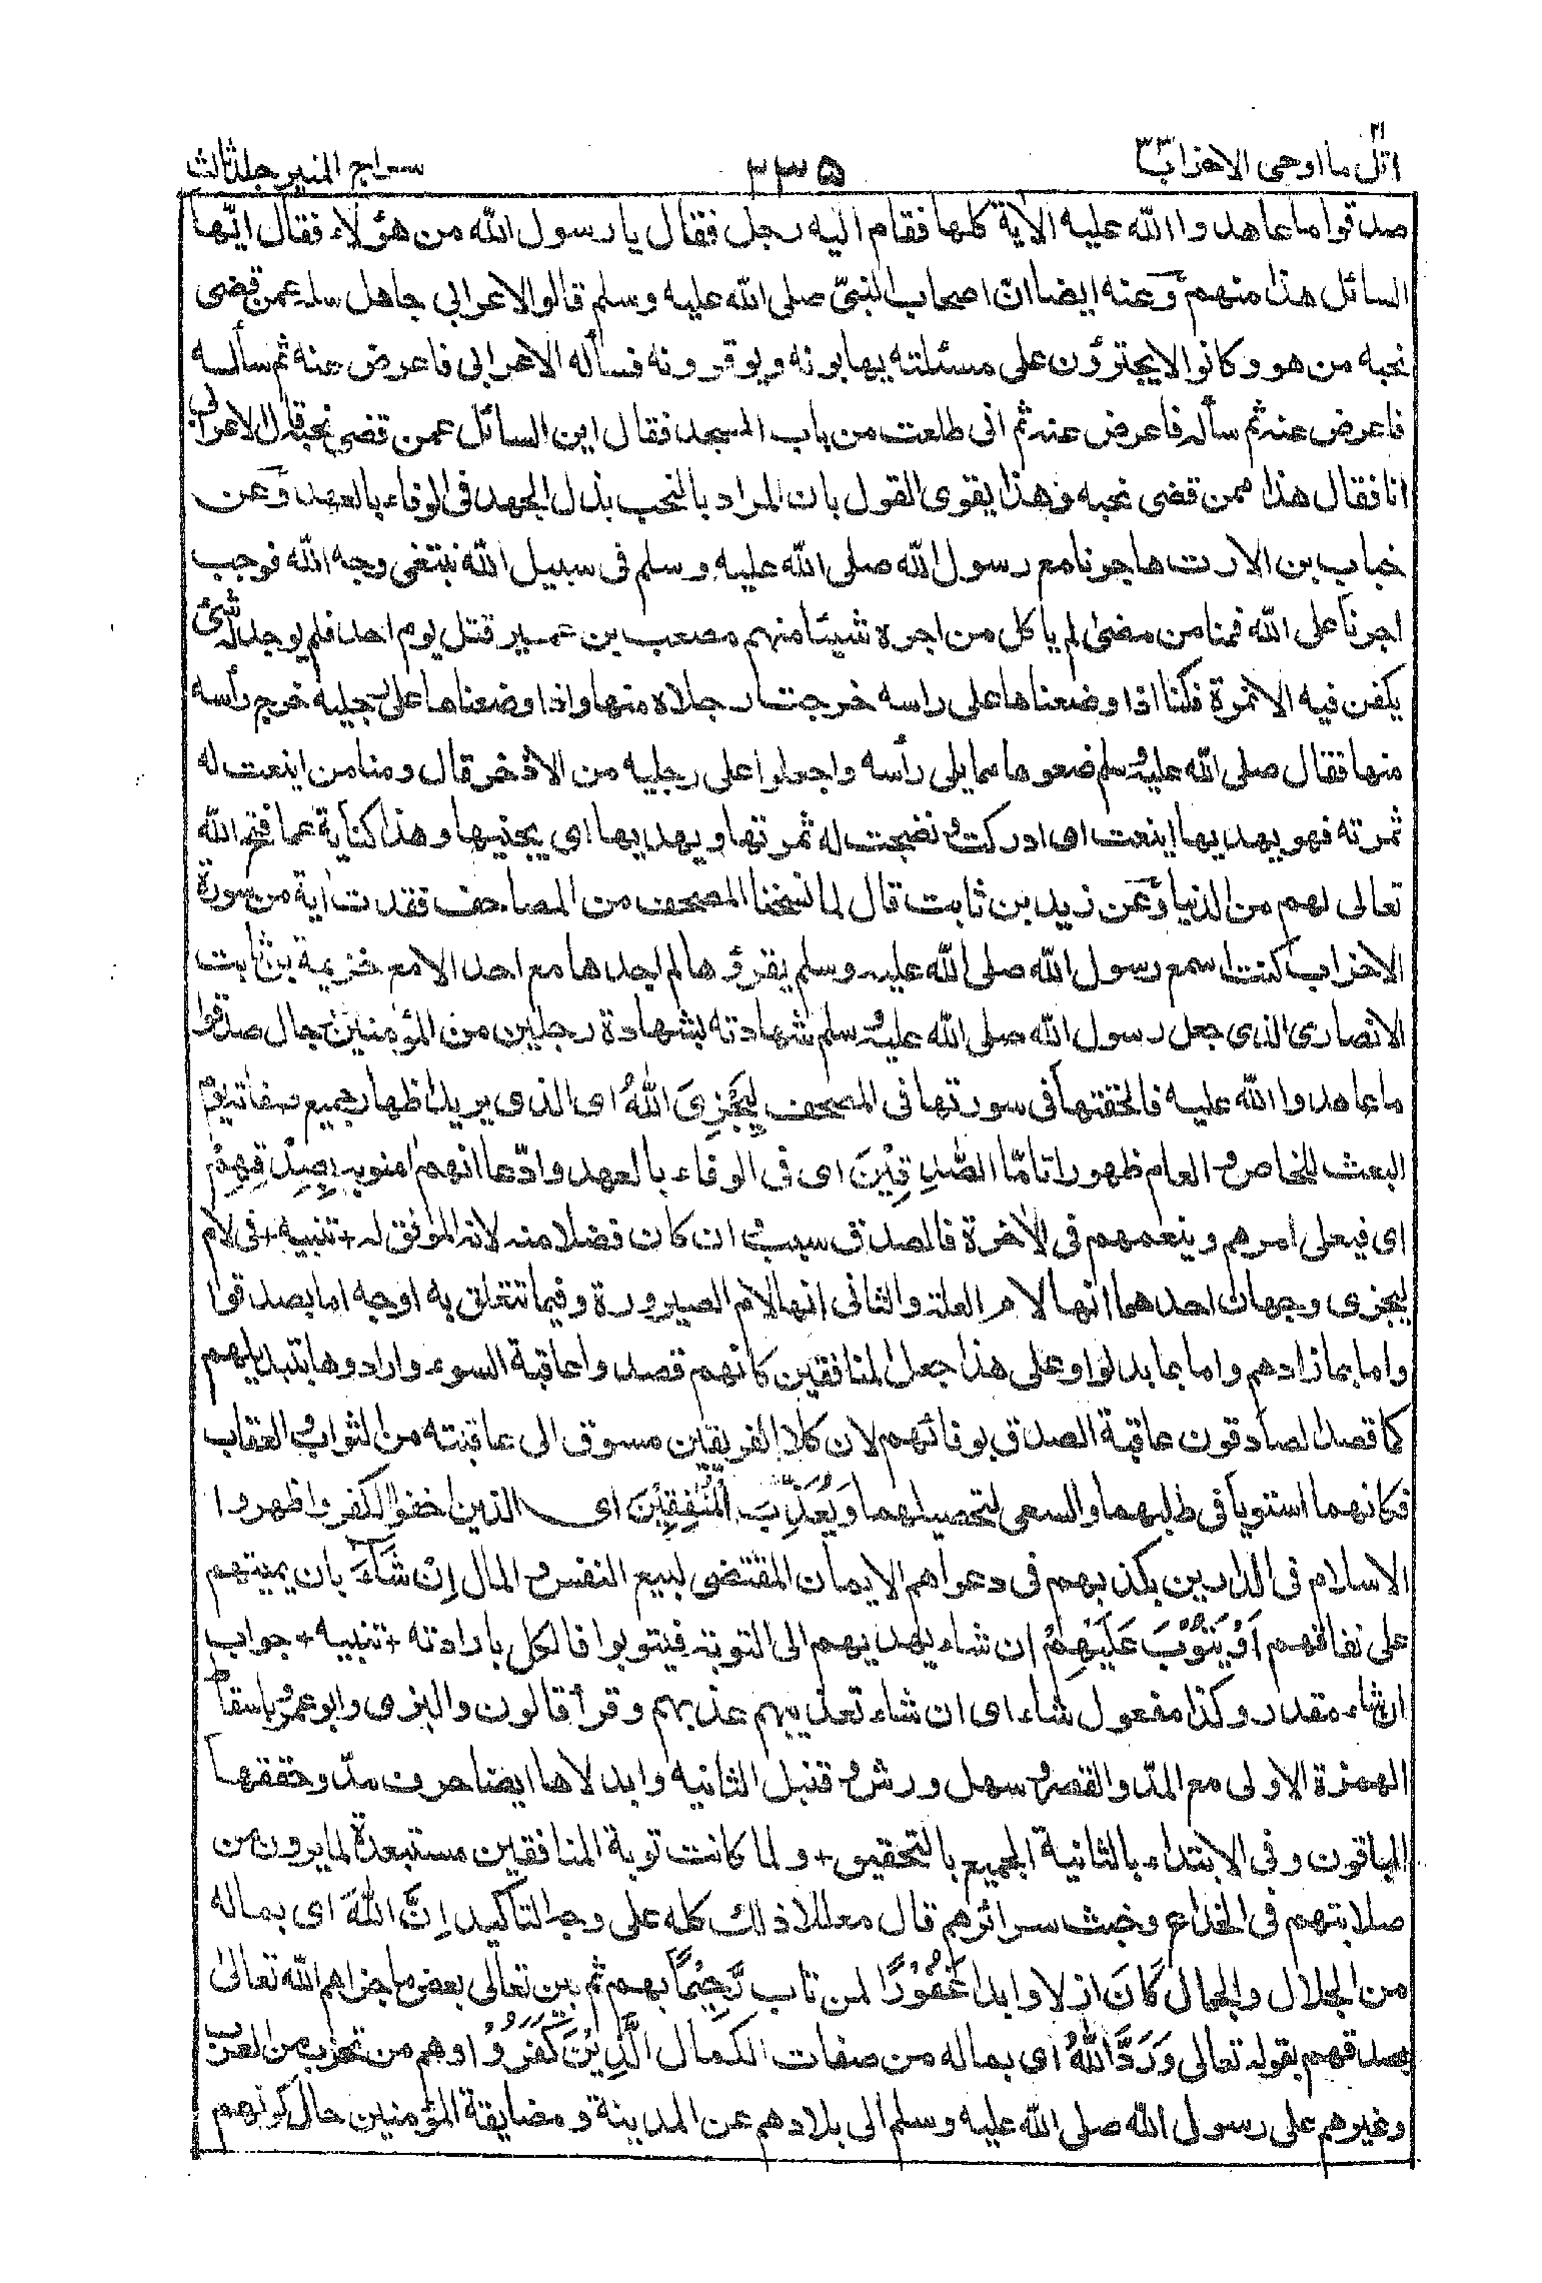 اتل ما اوحى ٢١ الاحزاب ٣٣
٢٣٥
سراج المنير جلد ثالث
صدقوا ما عاهدوا الله عليه الاية كلها فقام اليه رجل فقال يا رسول الله من هؤلاء فقال ايّها
السائل هذا منهم وعنه ايضا انّ اصحاب النبىّ صلى الله عليه وسلم قالوا لاعرابى جاهل سله عمن قضى
نحبه من هو وكانوا لا يجترؤن على مسئلته يهابونه ويوقرونه فسأله الاعرابى فاعرض عنه ثم سأله
فاعرض عنه ثم سأله فاعرض عنه ثم انى طلعت من باب المسجد فقال اين السائل عمن قضى نحبه قال الاعرابى
انا فقال هذا ممن قضى نحبه وهذا يقوى القول بان المراد بالنحب بذل الجهد فى الوفاء بالعهد وعن
خباب بن الارت هاجرنا مع رسول الله صلى الله عليه وسلم فى سبيل الله نبتغى وجه الله فوجب
اجرنا على الله فمنا من مضى لم ياكل من اجره شيئا منهم مصعب بن عمير قتل يوم احد فلم يوجد له شئ
يكفن فيه الا نمرة فكنا اذا وضعناها على راسه خرجت رجلاه منها واذا وضعناها على رجليه خرج رأسه
منها فقال صلى الله عليه وسلم ضعوها مما يلى رأسه واجعلوا على رجليه من الاذخر قال ومنا من اينعت له
ثمرته فهو يهديها اينعت اى ادركت و نضجت له ثمرتها ويهديها اى يجنيها وهذا كناية عما فتح الله
تعالى لهم من الدنيا وعن زيد بن ثابت قال لما نسخنا المصحف من المصاحف فقدت اية من سورة
الاحزاب كنت اسمع رسول الله صلى الله عليه وسلم يقرؤها لم اجدها مع احد الا مع خزيمة بن ثابت
الانصارى الذى جعل رسول الله صلى الله عليه وسلم شهادته بشهادة رجلين من المؤمنين رجال صدقوا
ما عاهدوا الله عليه فالحقتها فى سورتها فى المصحف لِيَجْزِىَ اللهُ اى الذى يريد اظهار جميع صفاته يوم
البعث للخاص و العام ظهورا تامّا الصّٰدِقِيْنَ اى فى الوفاء بالعهد وادّعا انهم امنوا به بِصِدْقِهِمْ
اى فيعلى امرهم وينعمهم فى الآخرة فالصدق سبب وان كان فضلا منه لانه الموفق له + تنبيه + فى لام
ليجزى وجهان احدهما انها لام العلة والثانى انها لام الصيرورة وفيما تتعلق به اوجه اما بصدقوا
واما بما زادهم واما بما بدلوا وعلى هذا جعل المنافقين كانهم قصدوا عاقبة السوء وارادوها بتبديلهم
كما قصد الصادقون عاقبة الصدق بوفائهم لان كلا الفريقين مسوق الى عاقبته من الثواب و العقاب
فكانهما استويا فى طلبهما والسعى لتحصيلهما وَيُعَذِّبَ الْمُنٰفِقِيْنَ اى الذين اخفوا الكفر واظهروا
الاسلام فى الدارين بكذبهم فى دعواهم الايمان المقتضى لبيع النفس و المال اِنْ شَآءَ بان يميتهم
على نفاقهم اَوْ يَتُوْبَ عَلَيْهِمْ ان شاء يهديهم الى التوبة فيتوبوا فالكل بارادته + تنبيه + جواب
ان شاء مقدر وكذا مفعول شاء اى ان شاء تعذيبهم عذبهم وقرأ قالون والبزى وابو عمرو باسقاط
الهمزة الاولى مع المدّ والقصر و سهل ورش و قنبل الثانيه وابدلاها ايضا حرف مدّ وحققهما
الباقون وفى الابتداء بالثانية الجميع بالتحقيق + ولما كانت توبة المنافقين مستبعدة لما يرون من
صلابتهم فى الخداع وخبث سرائرهم قال معللا ذلك كله على وجه التاكيد اِنَّ اللهَ اى بماله
من الجلال والجمال كَانَ ازلا وابدا غَفُوْرًا لمن تاب رَّحِيْمًا بهم ثم بين تعالى بعض ما جزاهم الله تعالىٰ
بصدقهم بقوله تعالى وَرَدَّ اللهُ اى بماله من صفات الكمال الَّذِيْنَ كَفَرُوْا وهم من تحزب من العرب
وغيرهم على رسول الله صلى الله عليه وسلم الى بلادهم عن المدينة ومضايقة المؤمنين حال كونهم